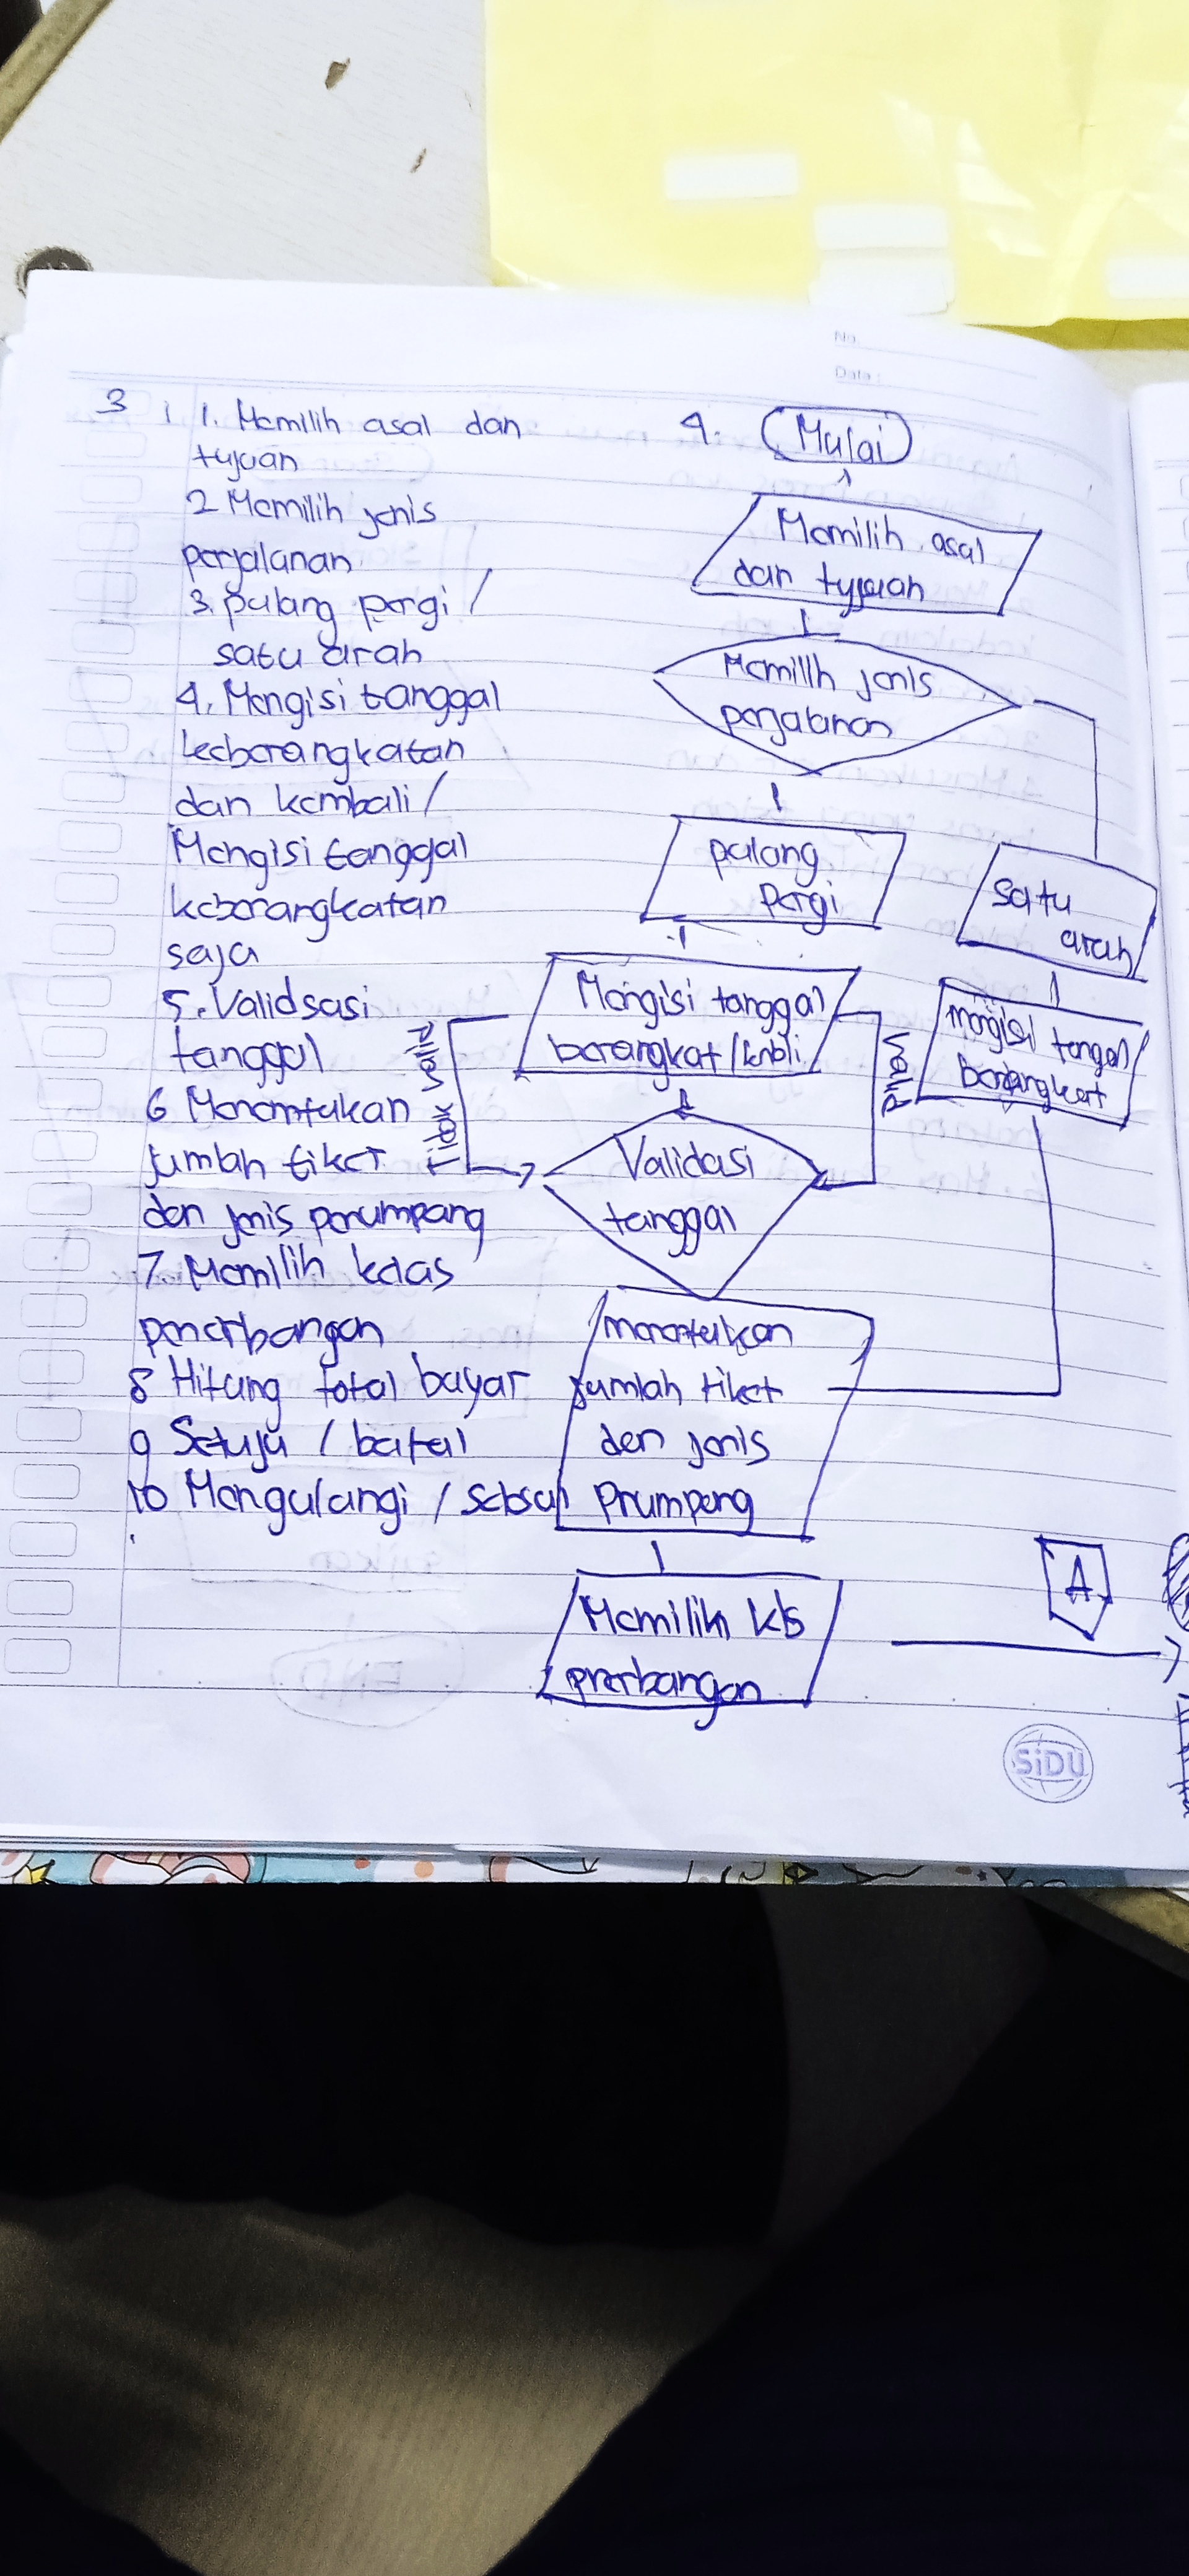 No.
Date :
3 1. Memilih asal dan
tujuan
2 Memilih jenis
perjalanan
3. pulang pergi /
satu arah
4. Mengisi tanggal
keberangkatan
dan kembali /
Mengisi tanggal
keberangkatan
saja
5. Validsasi
tanggal
6 Menemtukan
jumlah tiket
dan jenis penumpang
7. Memilih kelas
penerbangan
8 Hitung total bayar
9 Setuju / batal
10 Mengulangi /
4. Mulai
Memilih asal
dan
Memilih jenis
perjalanan
pulang
Pergi
satu
arah
Mengisi tanggal
berangkat /
mengisi
berangkat
Tidak valid
Valid
Validasi
tanggal
jumlah tiket
den jenis
Prumpang
Memilih kls
prerbangan
A
SiDU